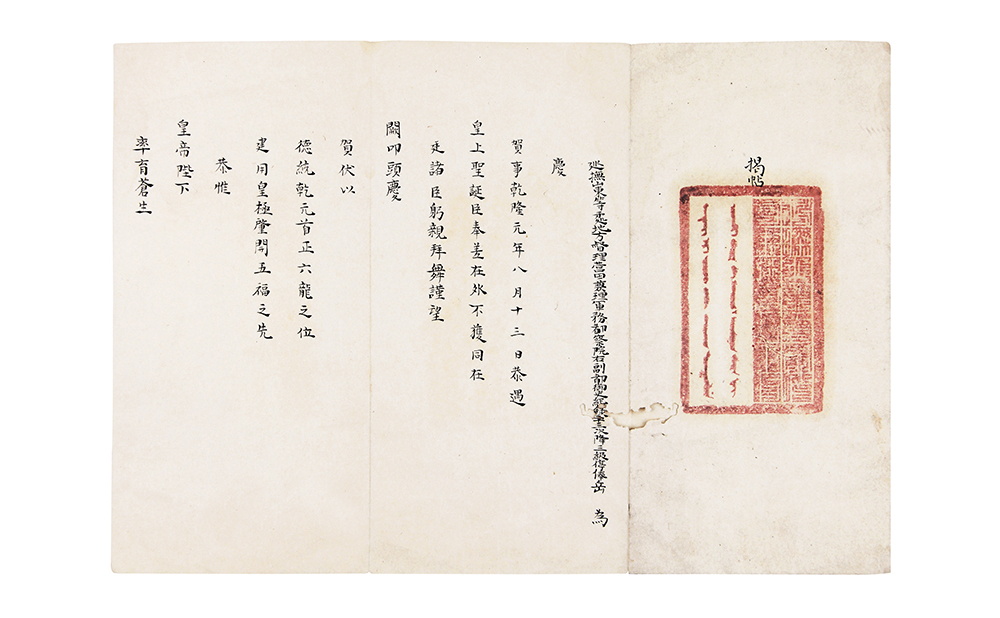 揭帖
巡撫山東等處地方督理營田兼理軍務都察院右副都御史紀錄三次降三級停俸岳 為
慶
賀事乾隆元年八月十三日恭遇
皇上聖誕臣奉差在外不獲同在
廷諸臣躬親拜舞謹望
闕叩頭慶
賀伏以
德統乾元首正六龍之位
建用皇極肇開五福之先
恭惟
皇帝陛下
率育蒼生